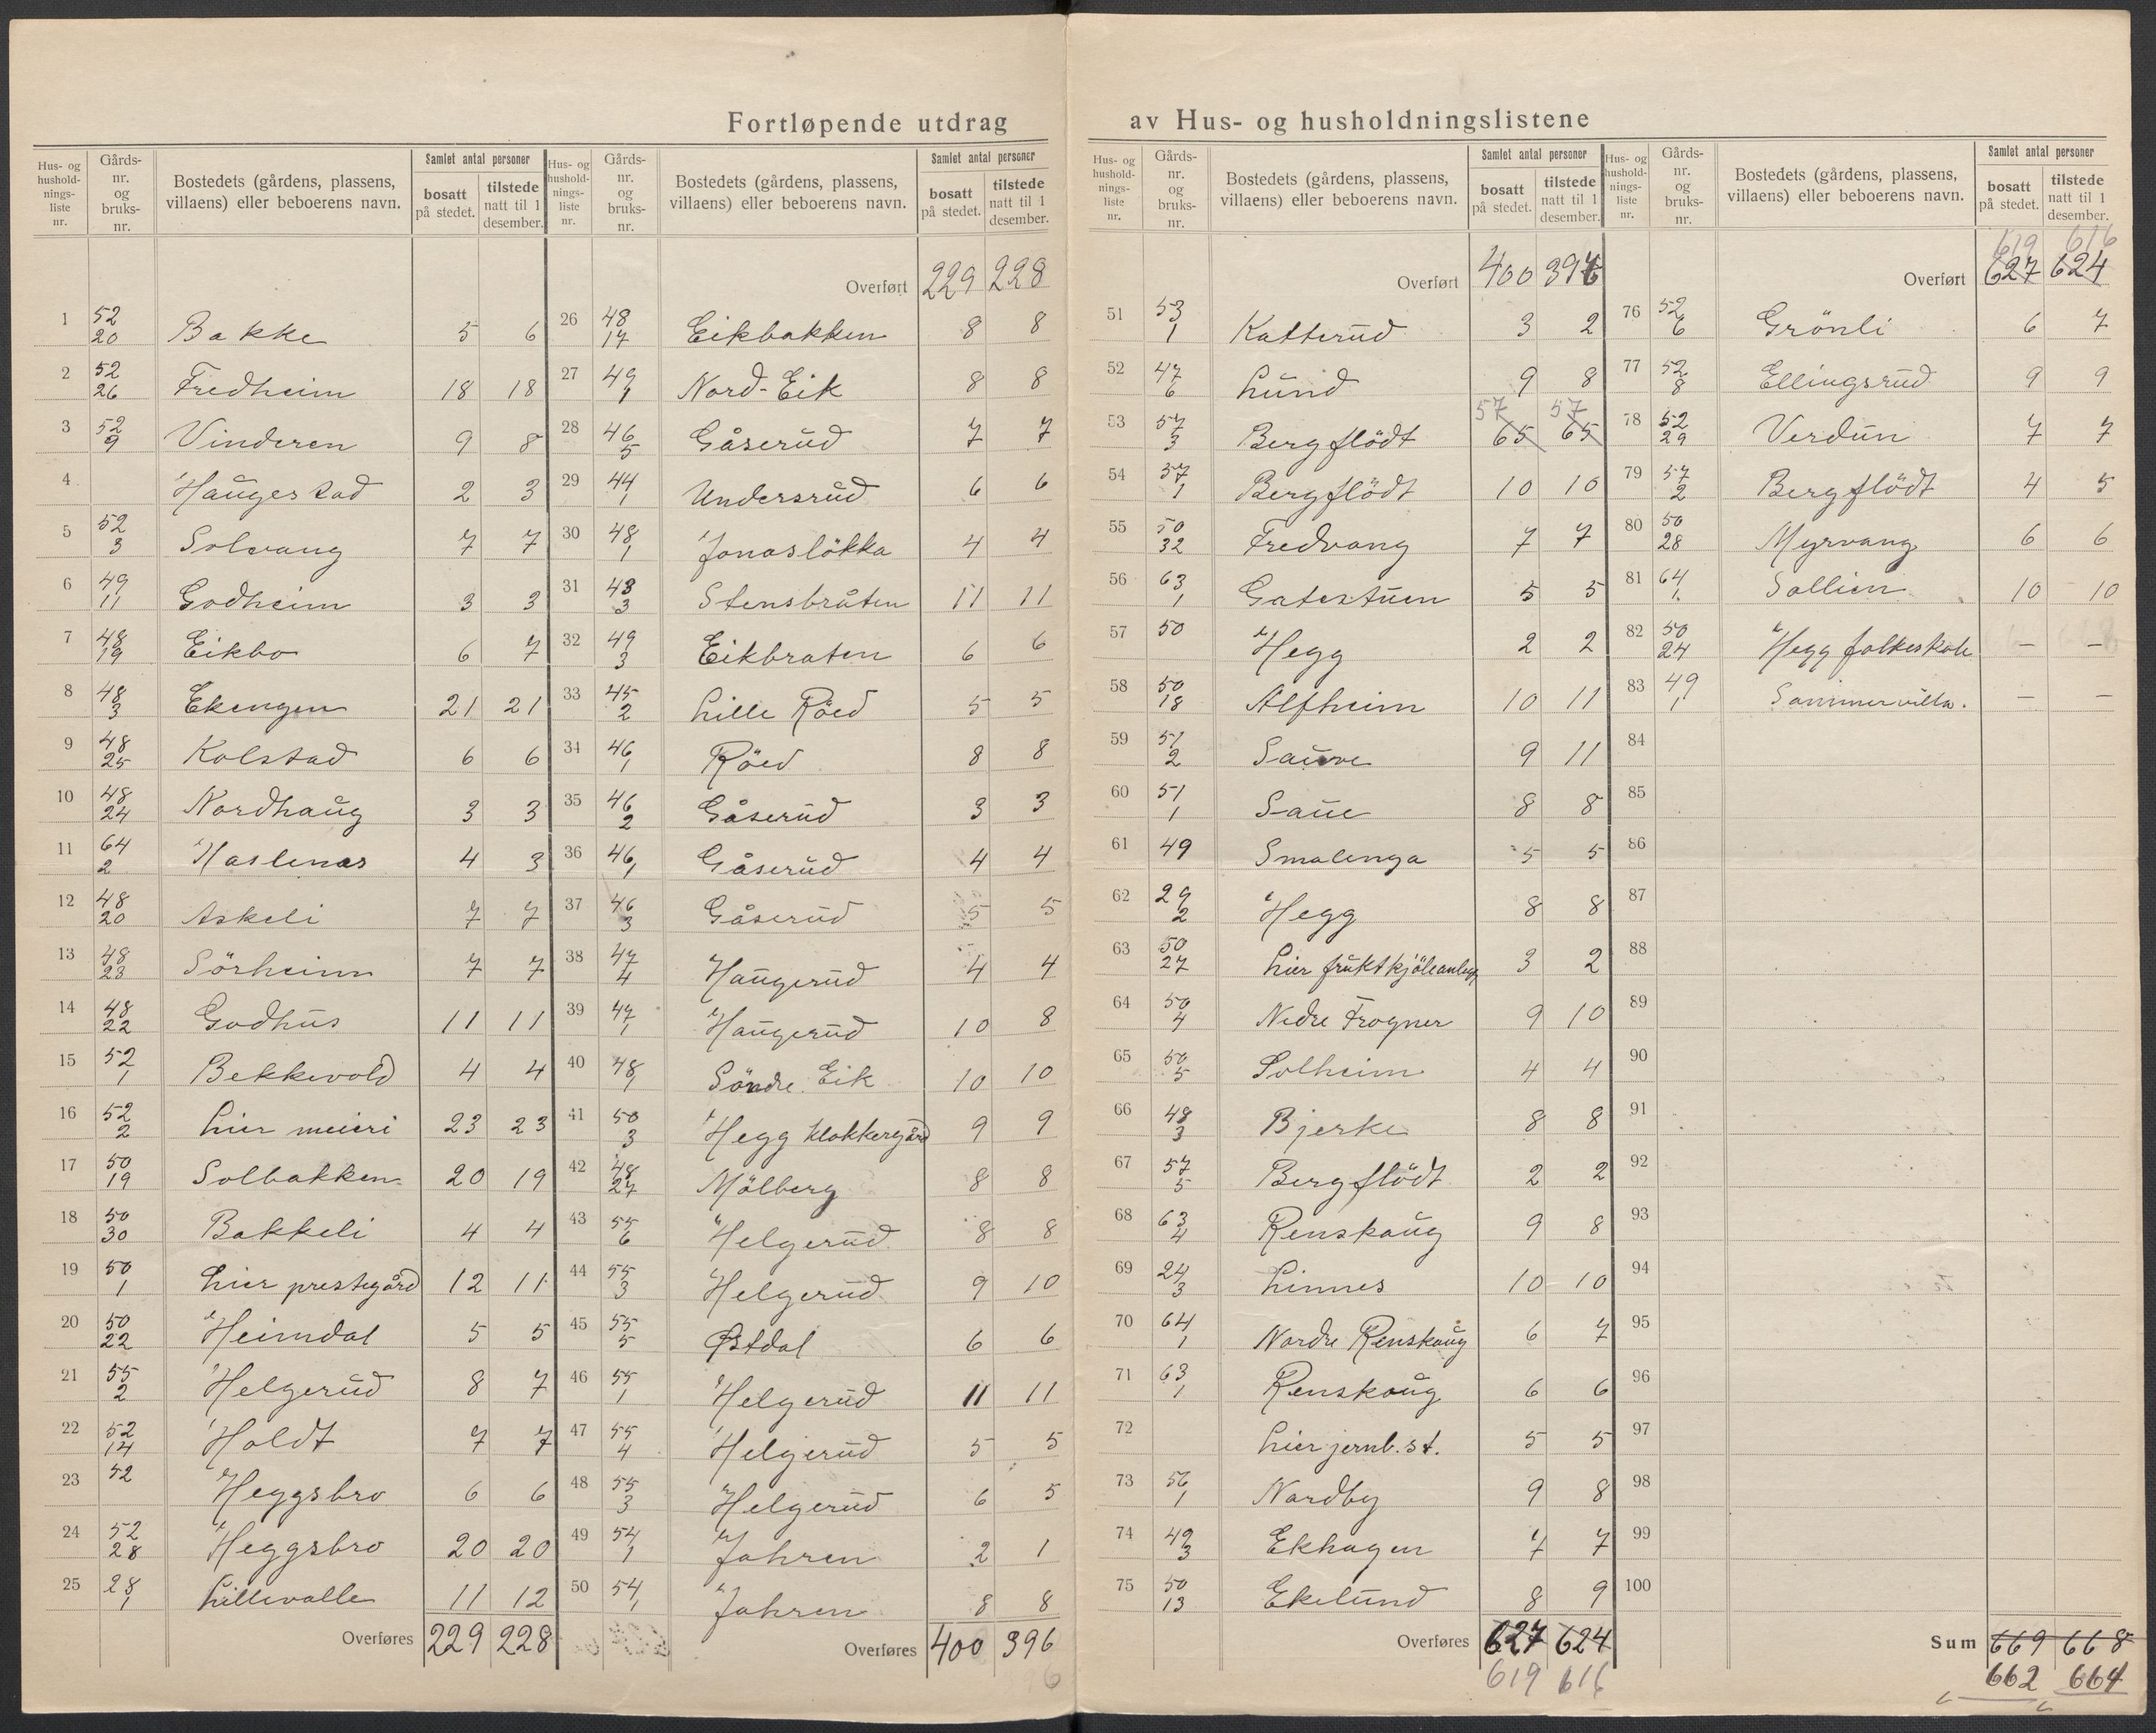 Fortløpende utdrag av Hus- og husholdningslistene
Hus- og hushold-nings-liste nr. | Gårds-nr. og bruks-nr. | Bostedets (gårdens, plassens, villaens) eller beboerens navn. | Samlet antal personer | bosatt på stedet. | tilstede natt til 1 desember.
1 52/20 Bakke 5 6
2 52/26 Fredheim 18 18
3 52/9 Vinderen 9 8
4 Haugestad 2 3
5 52/3 Solvang 7 7
6 49/11 Godheim 3 3
7 48/19 Eikbo 6 7
8 48/3 Ekengen 21 21
9 48/25 Kolstad 6 6
10 48/24 Nordhaug 3 3
11 64/2 Haslenæs 4 3
12 48/20 Askeli 7 7
13 48/23 Sörheim 7 7
14 48/22 Godhus 11 11
15 52/1 Bekkevold 4 4
16 52/2 Lier meieri 23 23
17 50/19 Solbakken 20 19
18 50/30 Bakkeli 4 4
19 50/1 Lier prestegård 12 11
20 50/22 Heimdal 5 5
21 55/2 Helgerud 8 7
22 52/14 Holdt 7 7
23 52 Heggsbro 6 6
24 52/28 Heggsbro 20 20
25 28/1 Lillevalle 11 12
Overføres 229 228
Hus- og hushold-nings-liste nr. | Gårds-nr. og bruks-nr. | Bostedets (gårdens, plassens, villaens) eller beboerens navn. | Samlet antal personer | bosatt på stedet. | tilstede natt til 1 desember.
Overført 229 228
26 48/17 Eikbakken 8 8
27 49/1 Nord-Eik 8 8
28 46/5 Gåserud 7 7
29 44/1 Undersrud 6 6
30 48/1 Jonaslökka 4 4
31 48/3 Stensbråten 11 11
32 49/3 Eikbraten 6 6
33 45/2 Lille Röed 5 5
34 46/1 Röed 8 8
35 46/2 Gåserud 3 3
36 46/1 Gåserud 4 4
37 46/3 Gåserud 5 5
38 47/4 Haugerud 4 4
39 47/1 Haugerud 10 8
40 48/1 Söndre Eik 10 10
41 50/3 Hegg klokkergård 9 9
42 48/27 Mölberg 8 8
43 55/6 Helgerud 8 8
44 55/3 Helgerud 9 10
45 55/5 Østdal 6 6
46 55/1 Helgerud 11 11
47 55/4 Helgerud 5 5
48 55/3 Helgerud 6 5
49 54/1 Jahren 2 1
50 54/1 Jahren 8 8
Overføres 400 396
Hus- og hushold-nings-liste nr. | Gårds-nr. og bruks-nr. | Bostedets (gårdens, plassens, villaens) eller beboerens navn. | Samlet antal personer | bosatt på stedet. | tilstede natt til 1 desember.
Overført 400 396
51 53/1 Katterud 3 2
52 47/6 Lund 9 8
57 57
53 57/3 Bergflödt 65 65
54 57/1 Bergflödt 10 10
55 50/32 Fredvang 7 7
56 63/1 Gatestuen 5 5
57 50 Hegg 2 2
58 50/18 Alfheim 10 11
59 51/2 Sauve 9 11
60 51/1 Saue 8 8
61 49 Smalenga 5 5
62 29/2 Hegg 8 8
63 50/27 Lier fruktkjöleanlegg 3 2
64 50/4 Nedre Frogner 9 10
65 50/5 Solheim 4 4
66 48/3 Bjerke 8 8
67 57/5 Bergflödt 2 2
68 63/4 Renskaug 9 8
69 24/3 Linnes 10 10
70 64/1 Nordre Renskaug 6 7
71 63/1 Renskaug 6 6
72 Lier jernb. st. 5 5
73 56/1 Nordby 9 8
74 49/3 Ekhagen 7 7
75 50/13 Ekelund 8 9
Overføres 627 624
619 616
Hus- og hushold-nings-liste nr. | Gårds-nr. og bruks-nr. | Bostedets (gårdens, plassens, villaens) eller beboerens navn. | Samlet antal personer | bosatt på stedet. | tilstede natt til 1 desember.
619 616
Overført 627 624
76 52/6 Grönli 6 7
77 52/8 Ellingsrud 9 9
78 52/29 Verdun 7 7
79 57/2 Bergflödt 4 5
80 50/28 Myrvang 6 6
81 64/1 Sollien 10 10
82 50/24 Hegg folkeskole — —
83 49/1 Sommervilla. — —
84
85
86
87
88
89
90
91
92
93
94
95
96
97
98
99
100
Sum 669 668
662 664